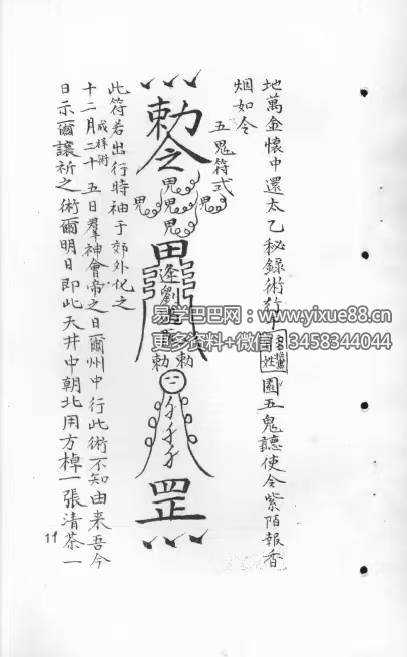 地萬金懷中還太乙秘錄術行
姓
園五鬼聽使令紫陌報香
烟如令
五鬼符式
勅令
鬼
鬼 鬼 鬼
鬼
勅 勅
罡
此符若出行時袖于郊外化之
十二月二十五日羣神會帝之日爾州中行此術不知由来吾今
日示爾讓祈之術爾明日即此天井中朝北用方棹一張清茶一
11
易学巴巴网:www.yixue88.cn
更多资料+微信:13458344044